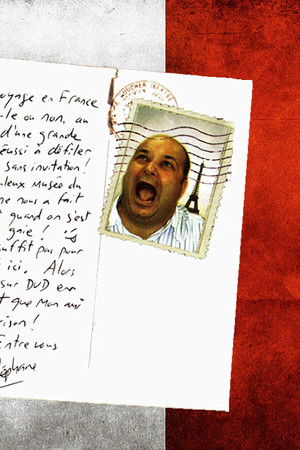 oyage en France
le ou non, au
d'une grande
éussi à défiler
sans invitation!
uleux Museo du
ne nous a fait
quand on s'est
gaie!
uffit pas pour
ici. Alors
sur DVD en
t que Mon ami
rison!
Entre vous
éphane